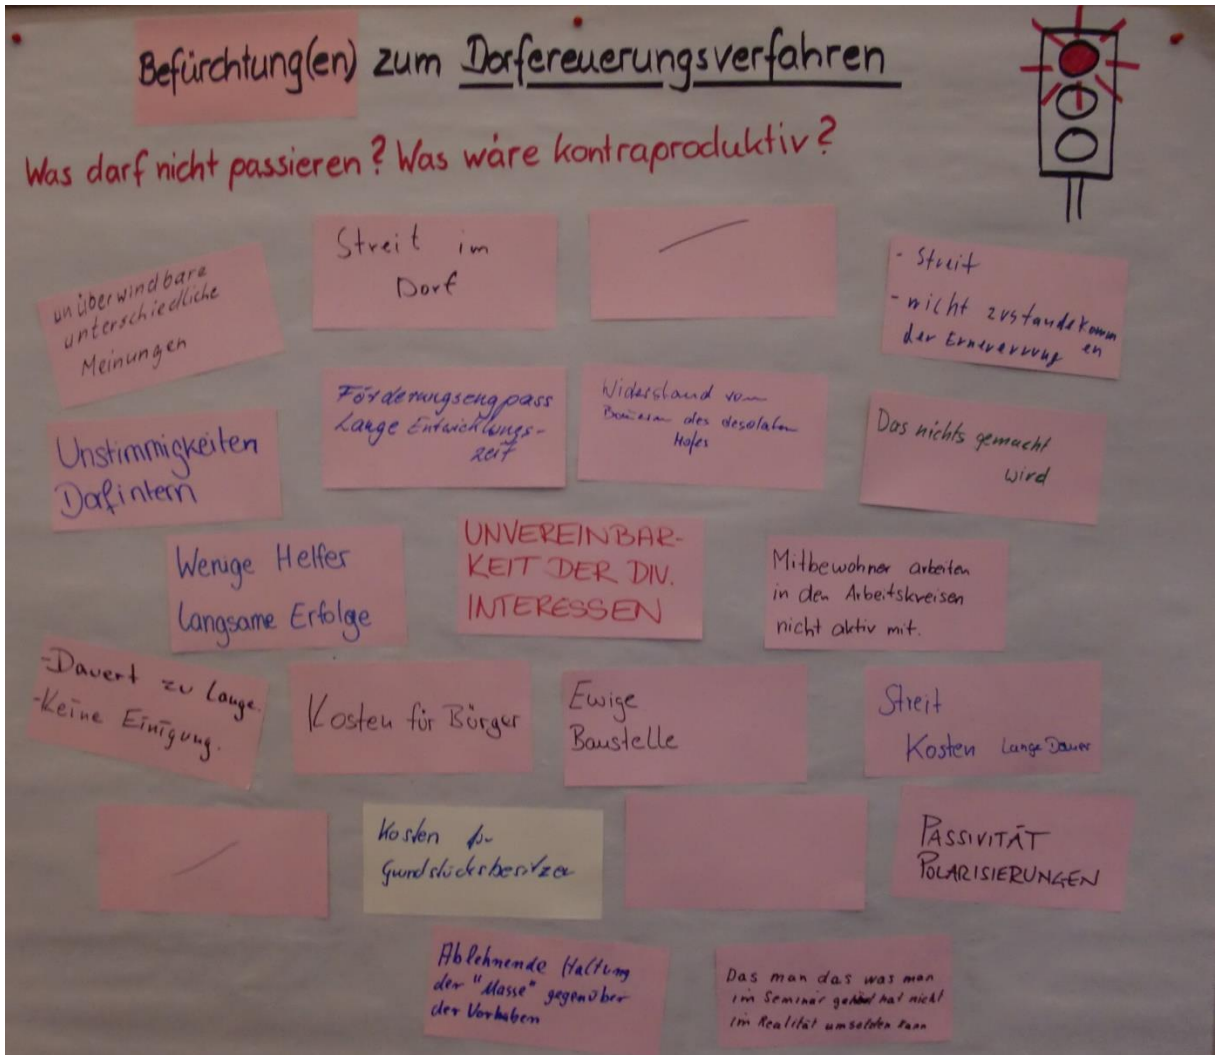 Befürchtung(en) zum Dorfereuerungsverfahren
Was darf nicht passieren? Was wäre kontraproduktiv?
unüberwindbare
unterschiedliche
Meinungen
Streit im
Dorf
- Streit
- nicht zustandekomm
en
der Erneuerung
Unstimmigkeiten
Dorfintern
Förderungsengpass
Lange Entwicklungs-
zeit
Widerstand vom
des desolaten
Hofes
Das nichts gemacht
wird
Wenige Helfer
Langsame Erfolge
UNVEREINBAR-
KEIT DER DIV.
INTERESSEN
Mitbewohner arbeiten
in den Arbeitskreisen
nicht aktiv mit.
-Dauert zu lange.
-Keine Einigung.
Kosten für Bürger
Ewige
Baustelle
Streit
Kosten Lange Dauer
Kosten für
Grundstücksbesitzer
PASSIVITÄT
POLARISIERUNGEN
Ablehnende Haltung
der "Masse" gegenüber
der Vorhaben
Das man das was man
im Seminar gehört hat nicht
im Realität umsetzten kann